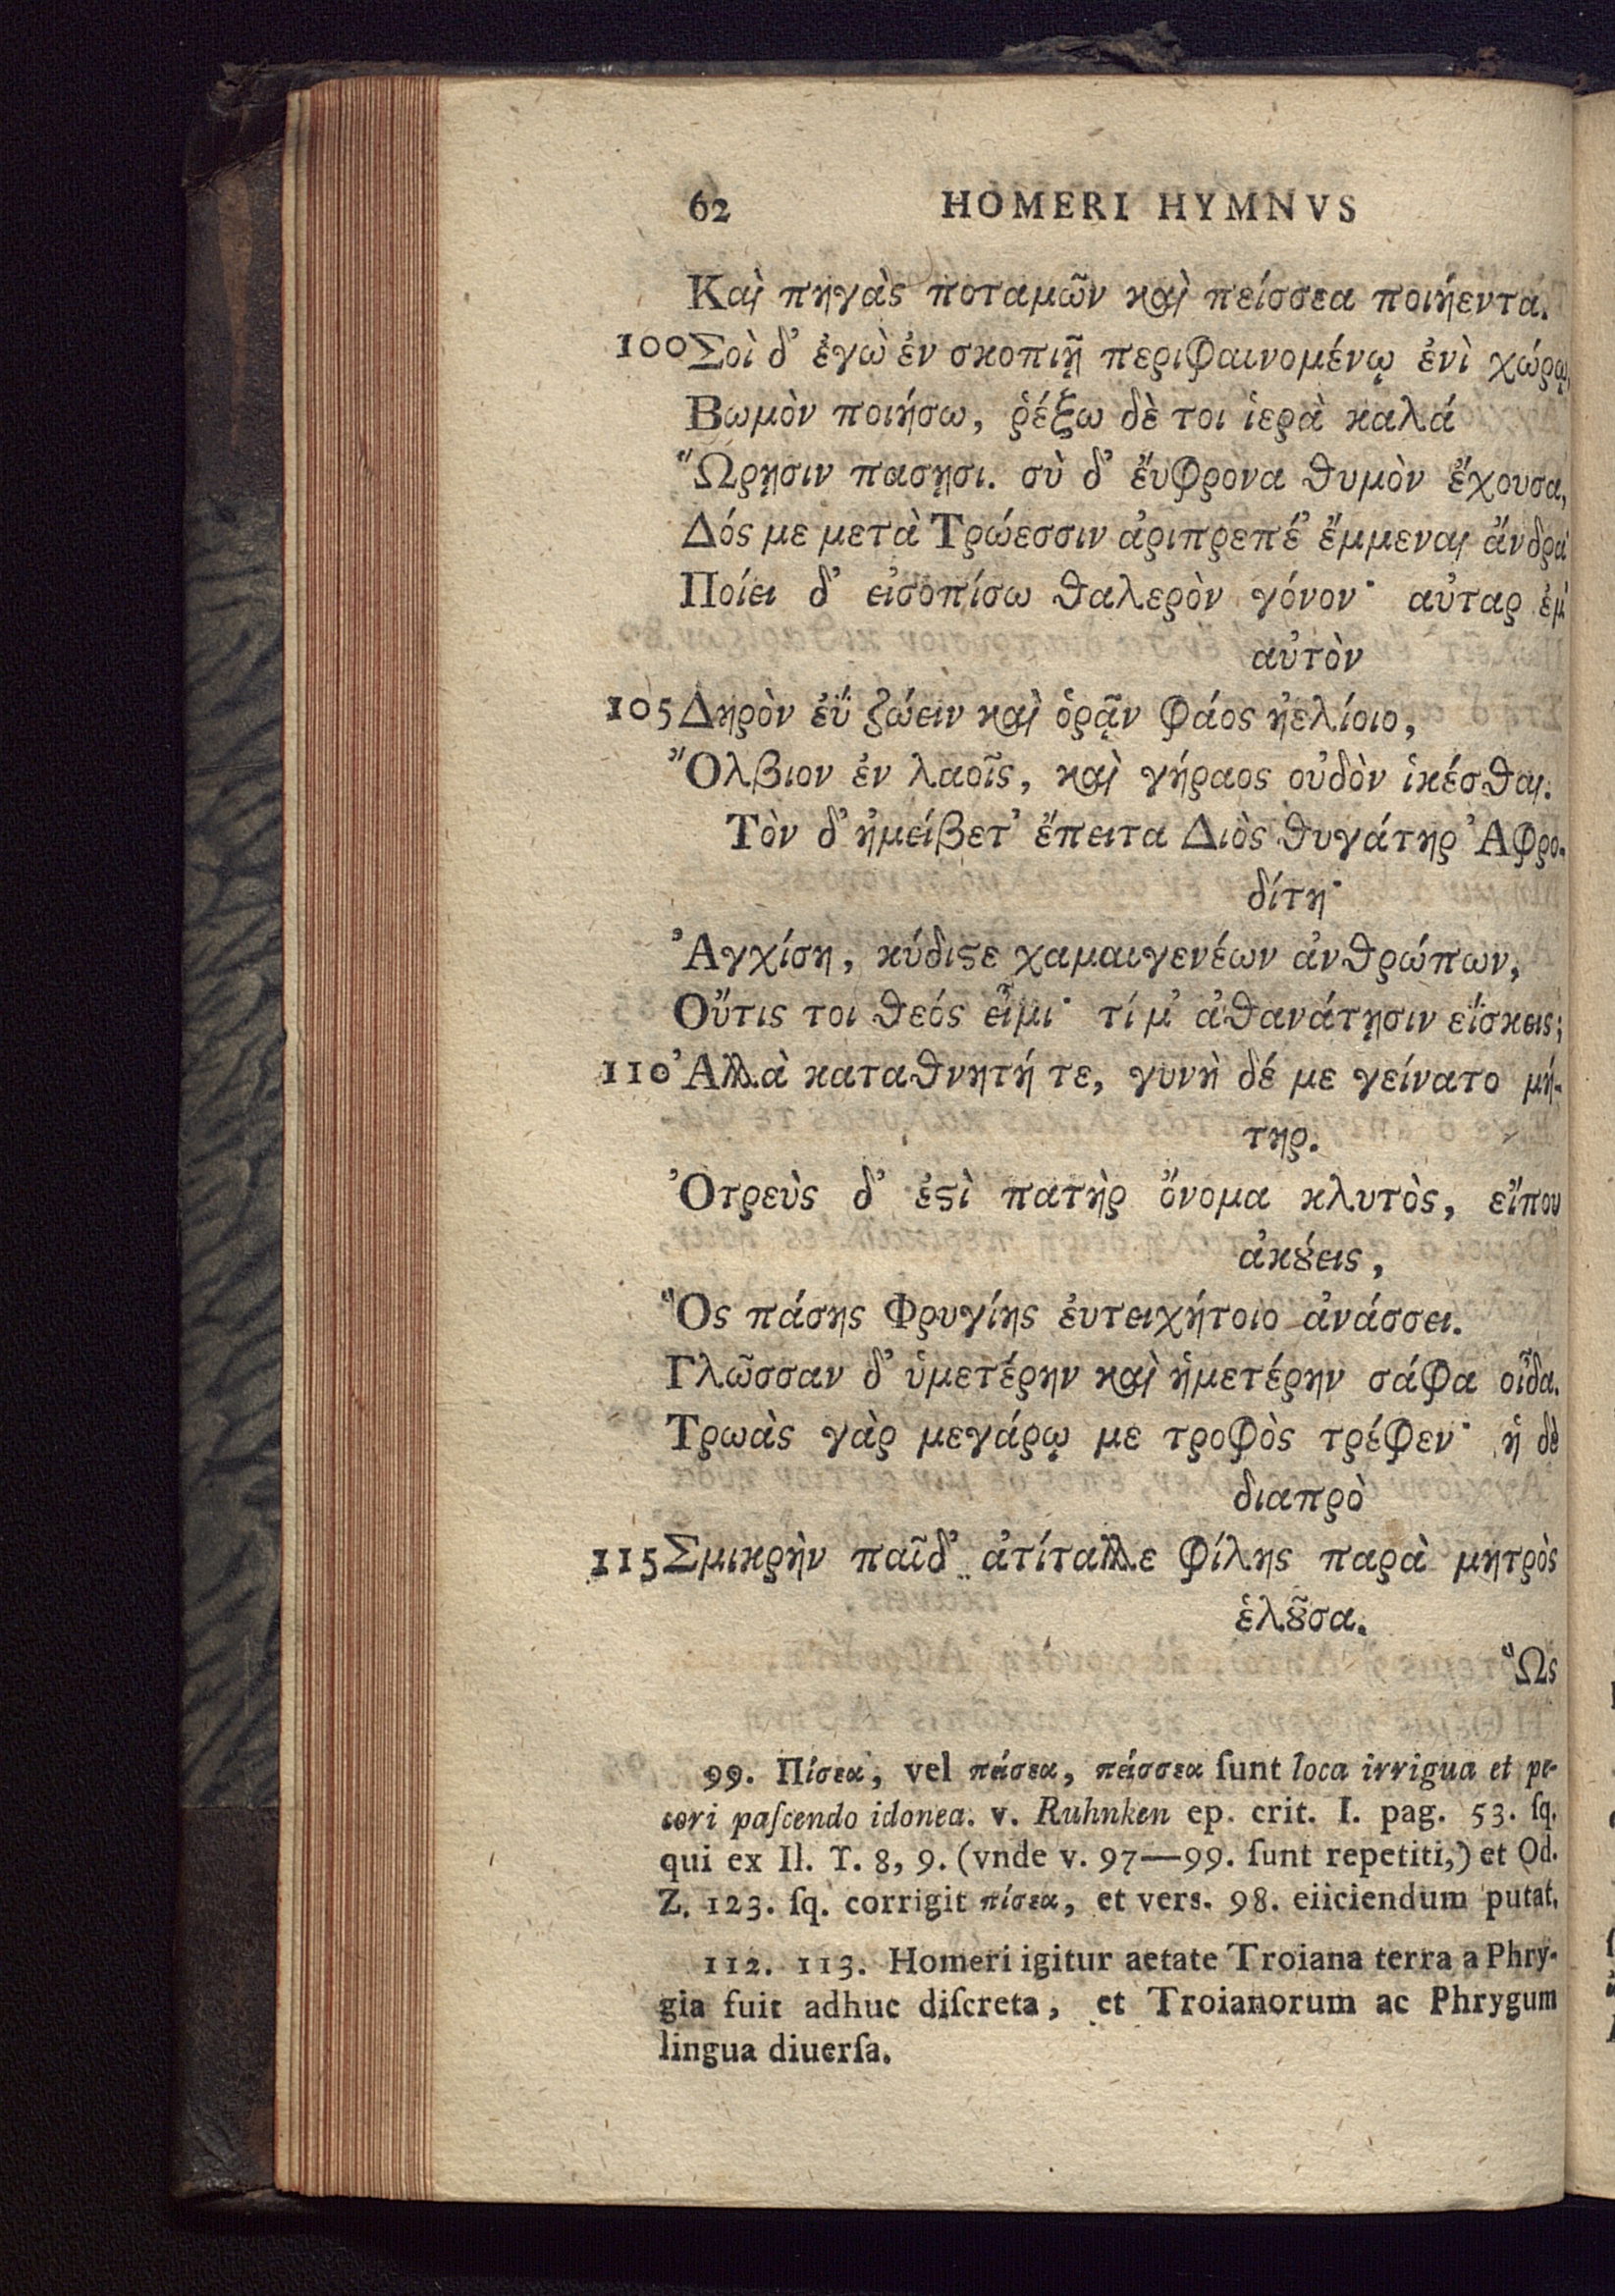 62 HOMERI HYMNVS
Καὶ πηγὰς ποταμῶν καὶ πείσσεα ποιήεντα.
100 Σοὶ δ' ἐγὼ ἐν σκοπιῇ περιφαινομένῳ ἐνὶ χώρῳ,
Βωμὸν ποιήσω, ῥέξω δὲ τοι ἱερὰ καλά
Ὥρῃσιν πασῃσι. σὺ δ' ἔυφρονα θυμὸν ἔχουσα,
Δός με μετὰ Τρώεσσιν ἀριπρεπέ' ἔμμεναι ἄνδρα
Ποίει δ' εἰσοπίσω θαλερὸν γόνον· αὐταρ ἐμ'
αὐτὸν
105 Δηρὸν ἐΰ ζώειν καὶ ὁρᾷν φάος ἠελίοιο,
Ὄλβιον ἐν λαοῖς, καὶ γήραος οὐδὸν ἱκέσθαι.
Τὸν δ' ἠμείβετ' ἔπειτα Διὸς θυγάτηρ Ἀφρο-
δίτη·
Ἀγχίση, κύδιϛε χαμαιγενέων ἀνθρώπων,
Οὔτις τοι θεός εἶμι· τί μ' ἀθανάτῃσιν εἴσκεις;
110 Ἀλλὰ καταθνητή τε, γυνὴ δέ με γείνατο μή-
τηρ.
Ὀτρεὺς δ' ἐϛὶ πατὴρ ὄνομα κλυτὸς, εἴπου
ἀκȣ́εις,
Ὃς πάσης Φρυγίης ἐυτειχήτοιο ἀνάσσει.
Γλῶσσαν δ' ὑμετέρην καὶ ἡμετέρην σάφα οἶδα.
Τρωὰς γὰρ μεγάρῳ με τροφὸς τρέφεν· ἡ δὲ
διαπρὸ
115 Σμικρὴν παῖδ' ἀτίταλλε φίλης παρὰ μητρὸς
ἑλȣ͂σα.
Ὣς
99. Πίσεα, vel πείσεα, πείσσεα ſunt loca irrigua et pe-
cori paſcendo idonea. v. Ruhnken ep. crit. I. pag. 53. ſq.
qui ex Il. Υ. 8, 9. (vnde v. 97—99. ſunt repetiti,) et Od.
Z. 123. ſq. corrigit πίσεα, et vers. 98. eiiciendum putat.
112. 113. Homeri igitur aetate Troiana terra a Phry-
gia fuit adhuc diſcreta, et Troianorum ac Phrygum
lingua diuerſa.